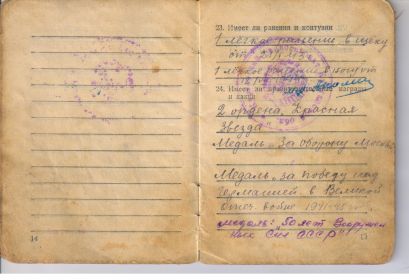 14
23. Имеет ли ранения и контузии
1 легкое ранение в щеку
от
1 легкое ранение в
24. Имеет ли правительственные награды
и какие
2 ордена „Красная
Звезда"
Медаль „За оборону Москвы"
Медаль „за победу над
германией в Великой
Отеч. войне 1941-45
медаль: „50 лет Вооружен
ных Сил СССР"